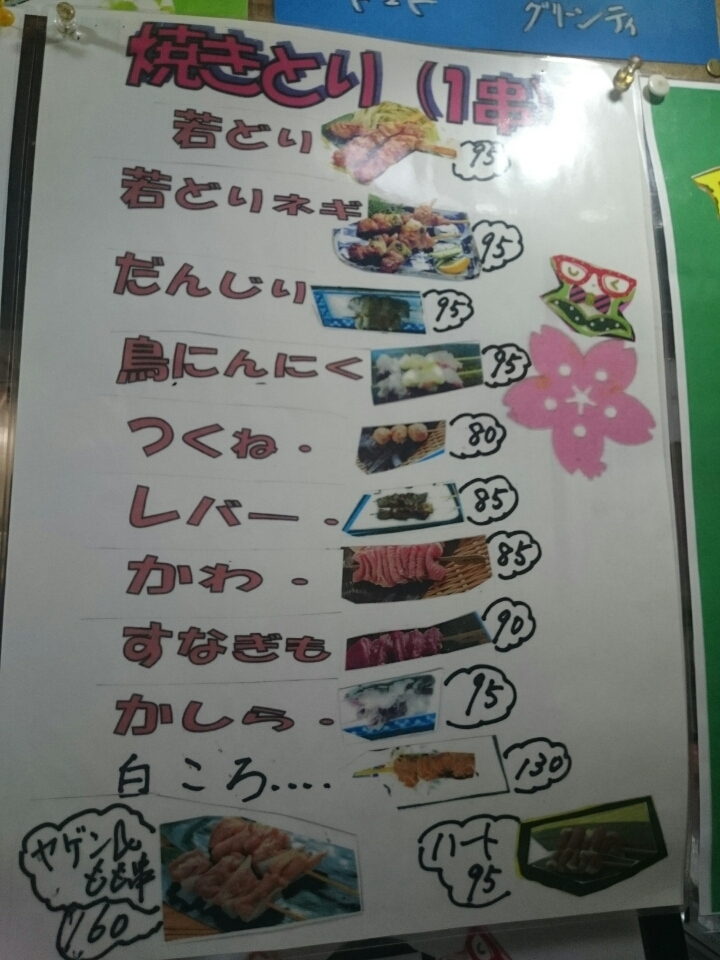 グリーンティ
焼きとり(1串)
若どり 95
若どりネギ 95
だんじり 95
鳥にんにく 95
つくね. 80
レバー. 85
かわ. 85
すなぎも 90
かしら. 95
白ころ.... 130
ヤゲン&
もも串
160
ハート
95